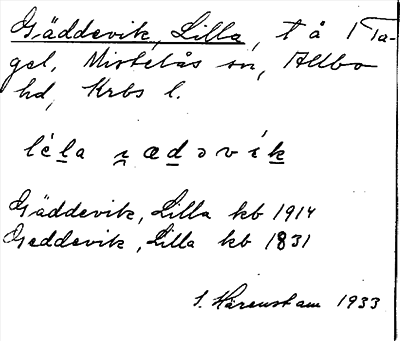 Gäddevik, Lilla, t å 1 Ta-
gel, Mistelås sn, Allbo
hd, Krbs l.
Gäddevik, Lilla kb 1914
Geddevik, Lilla kb 1831
S. Härenstam 1933